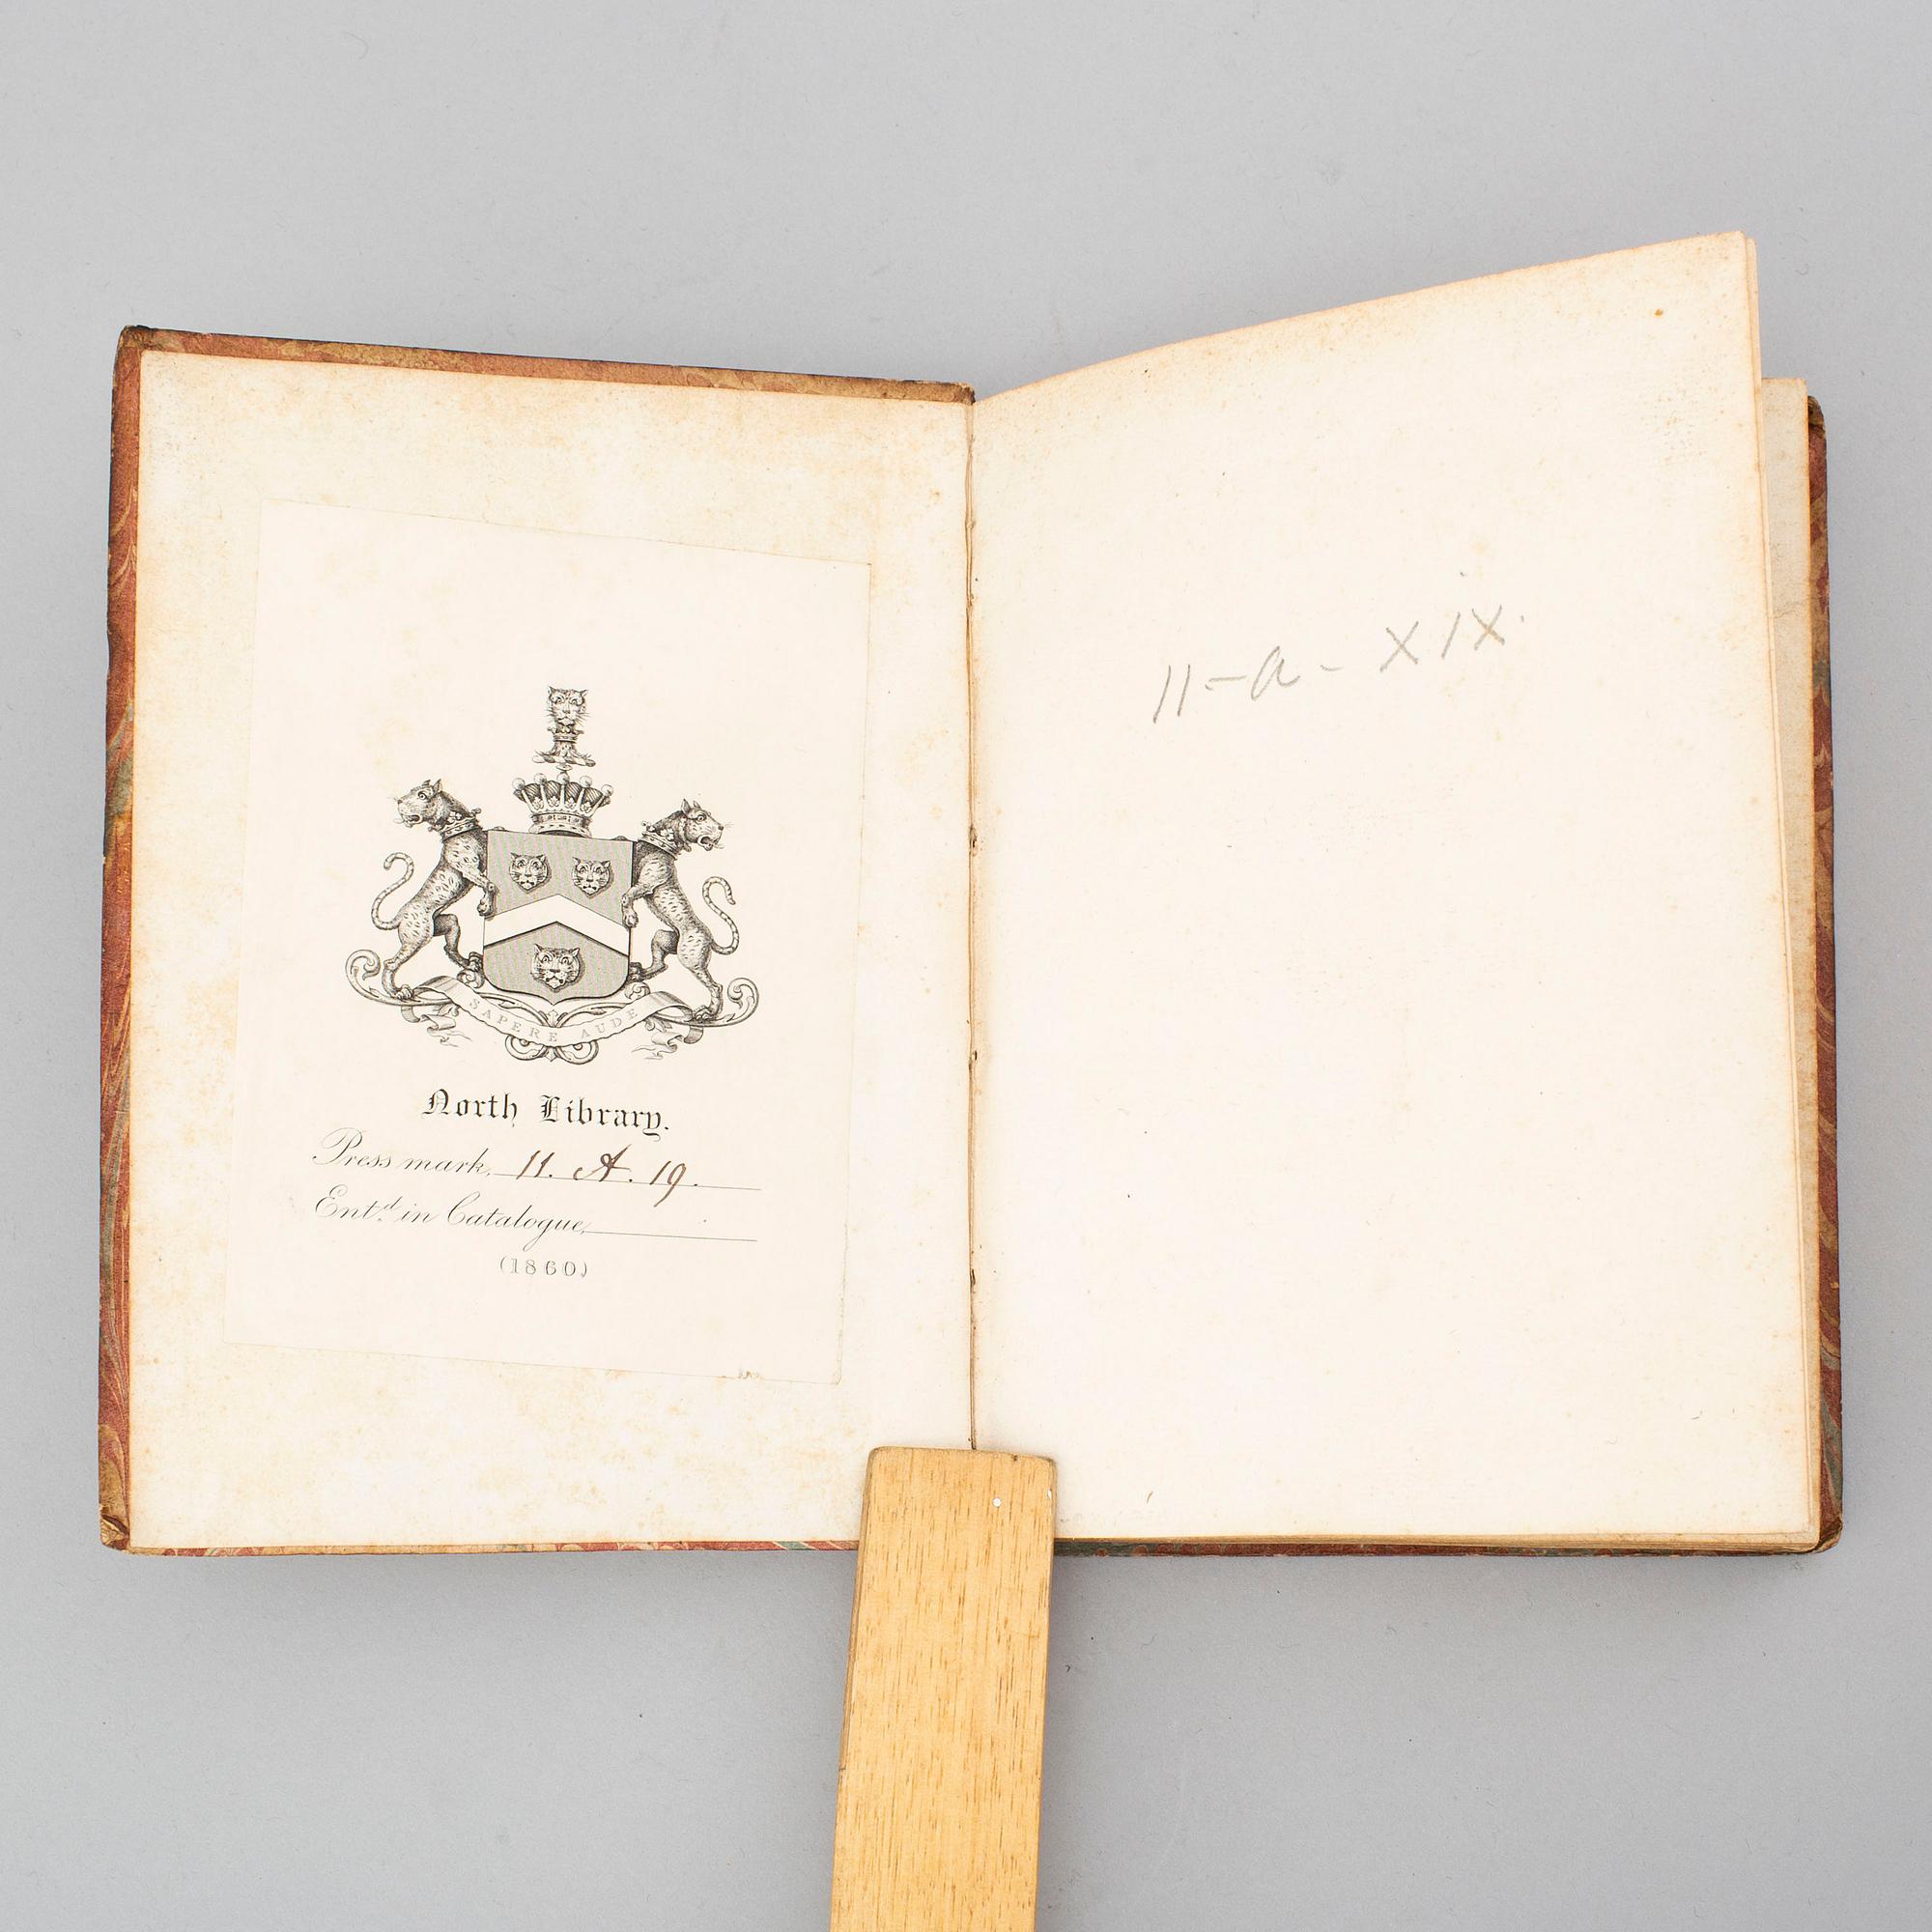 SAPERE AUDE
North Library.
Press mark, 11. A. 19.
Entd. in Catalogue,
(1860)
11-a-XIX.